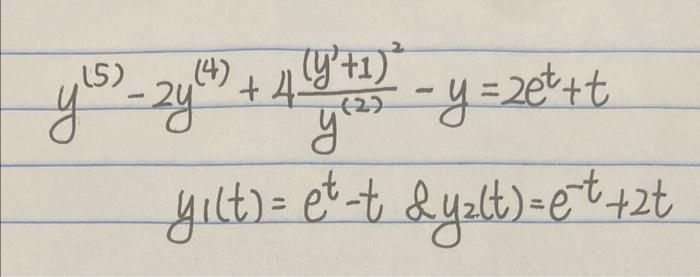 y⁽⁵⁾ - 2y⁽⁴⁾ + 4 (y'+1)² / y⁽²⁾ - y = 2eᵗ + t
y₁(t) = eᵗ - t & y₂(t) = e⁻ᵗ + 2t